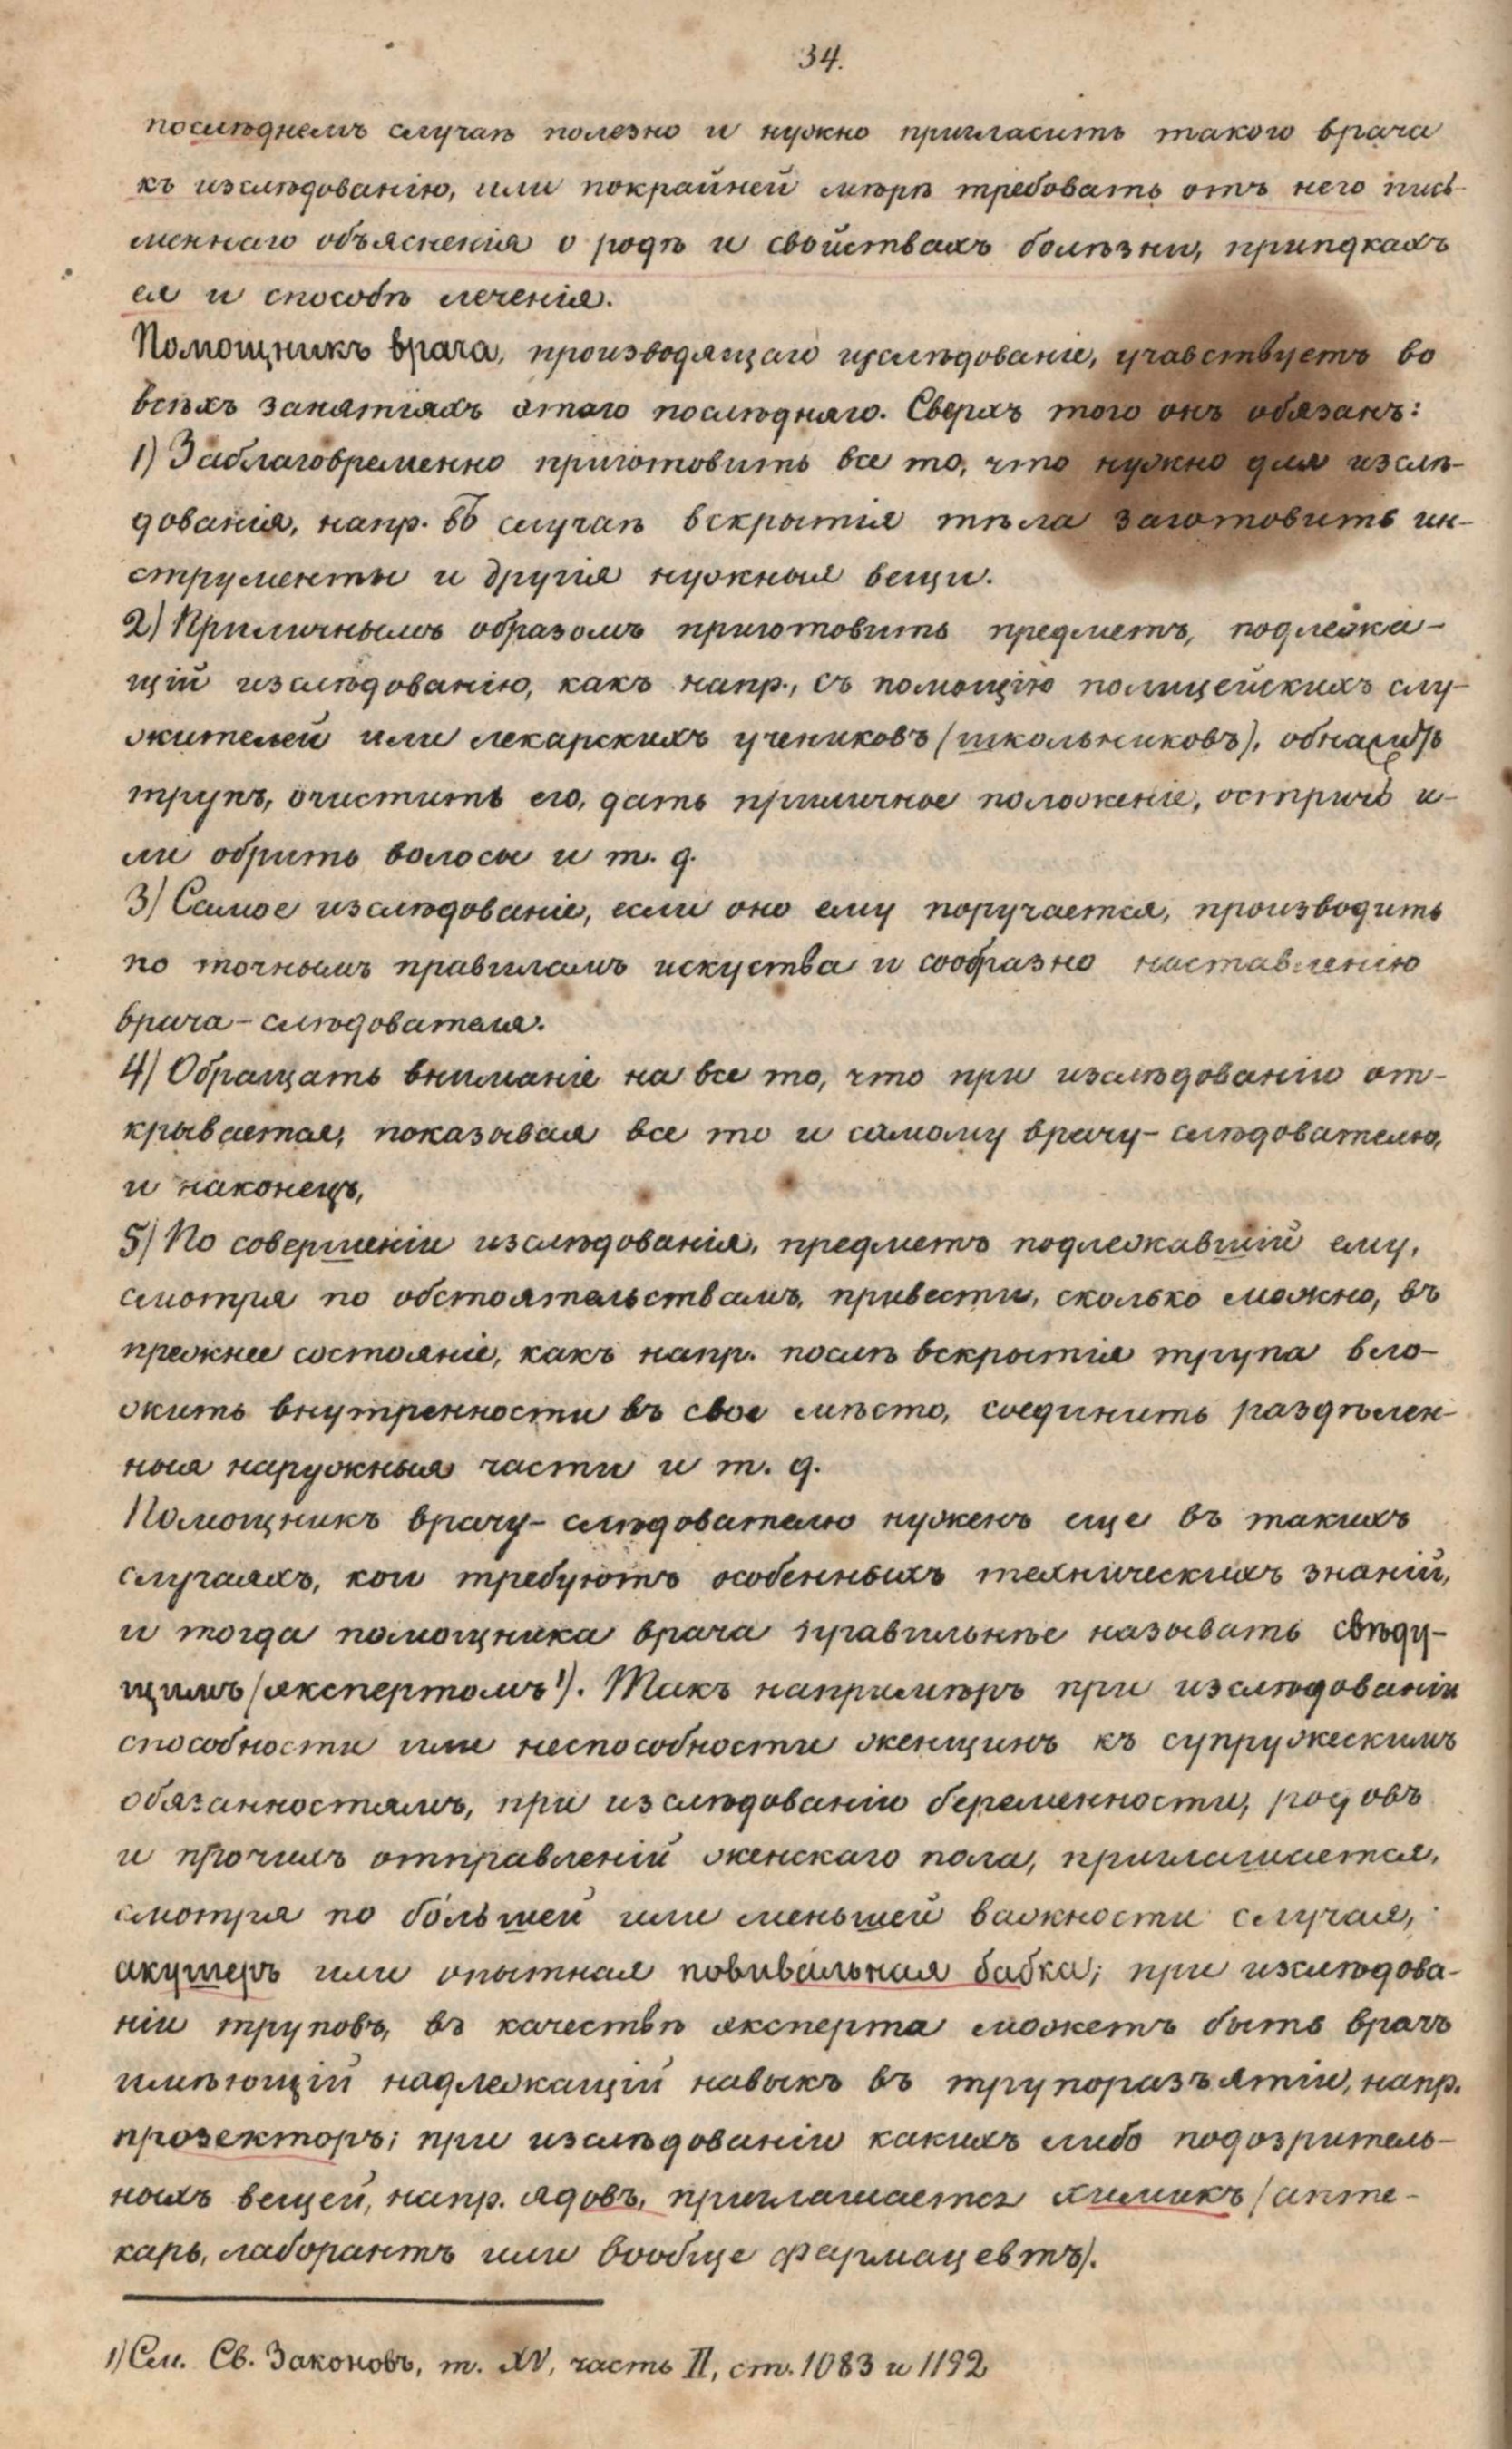 34.
послѣднемъ случаѣ полезно и нужно пригласить такого врача
къ изслѣдованію, или покрайней мѣрѣ требовать отъ него пись-
меннаго объясненія о родѣ и свойствахъ болѣзни, припдкахъ
ея и способѣ леченія.
Помощникъ врача, производящаго изслѣдованіе, учавствуетъ во
всѣхъ занятіяхъ этаго послѣдняго. Сверхъ того онъ обязанъ:
1) Заблаговременно приготовить все то, что нужно для изслѣ-
дованія, напр. въ случаѣ вскрытія тѣла заготовить ин-
струменты и другія нужныя вещи.
2) Приличнымъ образомъ приготовить предметъ, подлежа-
щій изслѣдованію, какъ напр., съ помощію полицейскихъ слу-
жителей или лекарскихъ учениковъ (школьниковъ), обнажить
трупъ, очистить его, дать приличное положеніе, остричь и-
ли обрить волосы и т. д.
3) Самое изслѣдованіе, если оно ему поручается, производить
по точнымъ правиламъ искуства и сообразно наставленію
врача-слѣдователя.
4) Обращать вниманіе на все то, что при изслѣдованію от-
крывается, показывая все то и самому врачу-слѣдователю,
и наконецъ,
5) По совершеніи изслѣдованія, предметъ подлежавшій ему,
смотря по обстоятельствамъ, привести, сколько можно, въ
прежнее состояніе, какъ напр. послѣ вскрытія трупа вло-
жить внутренности въ свое мѣсто, соединить раздѣлен-
ныя наружныя части и т. д.
Помощникъ врачу-слѣдователю нуженъ еще въ такихъ
случаяхъ, кои требуютъ особенныхъ техническихъ знаній,
и тогда помощника врача правильнѣе называть свѣду-
щимъ (экспертомъ 1). Такъ напримѣръ при изслѣдованіи
способности или неспособности женщинъ къ супружескимъ
обязанностямъ, при изслѣдованію беременности, родовъ
и прочихъ отправленій женскаго пола, приглашается,
смотря по бо́льшей или меньшей важности случая,
акушеръ или опытная повивальная бабка; при изслѣдова-
ніи труповъ, въ качествѣ эксперта можетъ быть врачъ
имѣющій надлежащій навыкъ въ трупоразъятіи, напр.
прозекторъ; при изслѣдованію какихъ либо подозритель-
ныхъ вещей, напр. ядовъ, приглашается химикъ (апте-
карь, лаборантъ или вообще фармацевтъ).
1) См. Св. Законовъ, т. XV, часть II, ст. 1083 и 1192